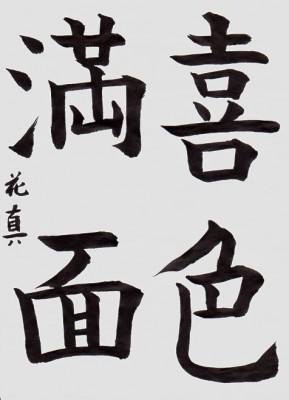 喜色
満面
花真